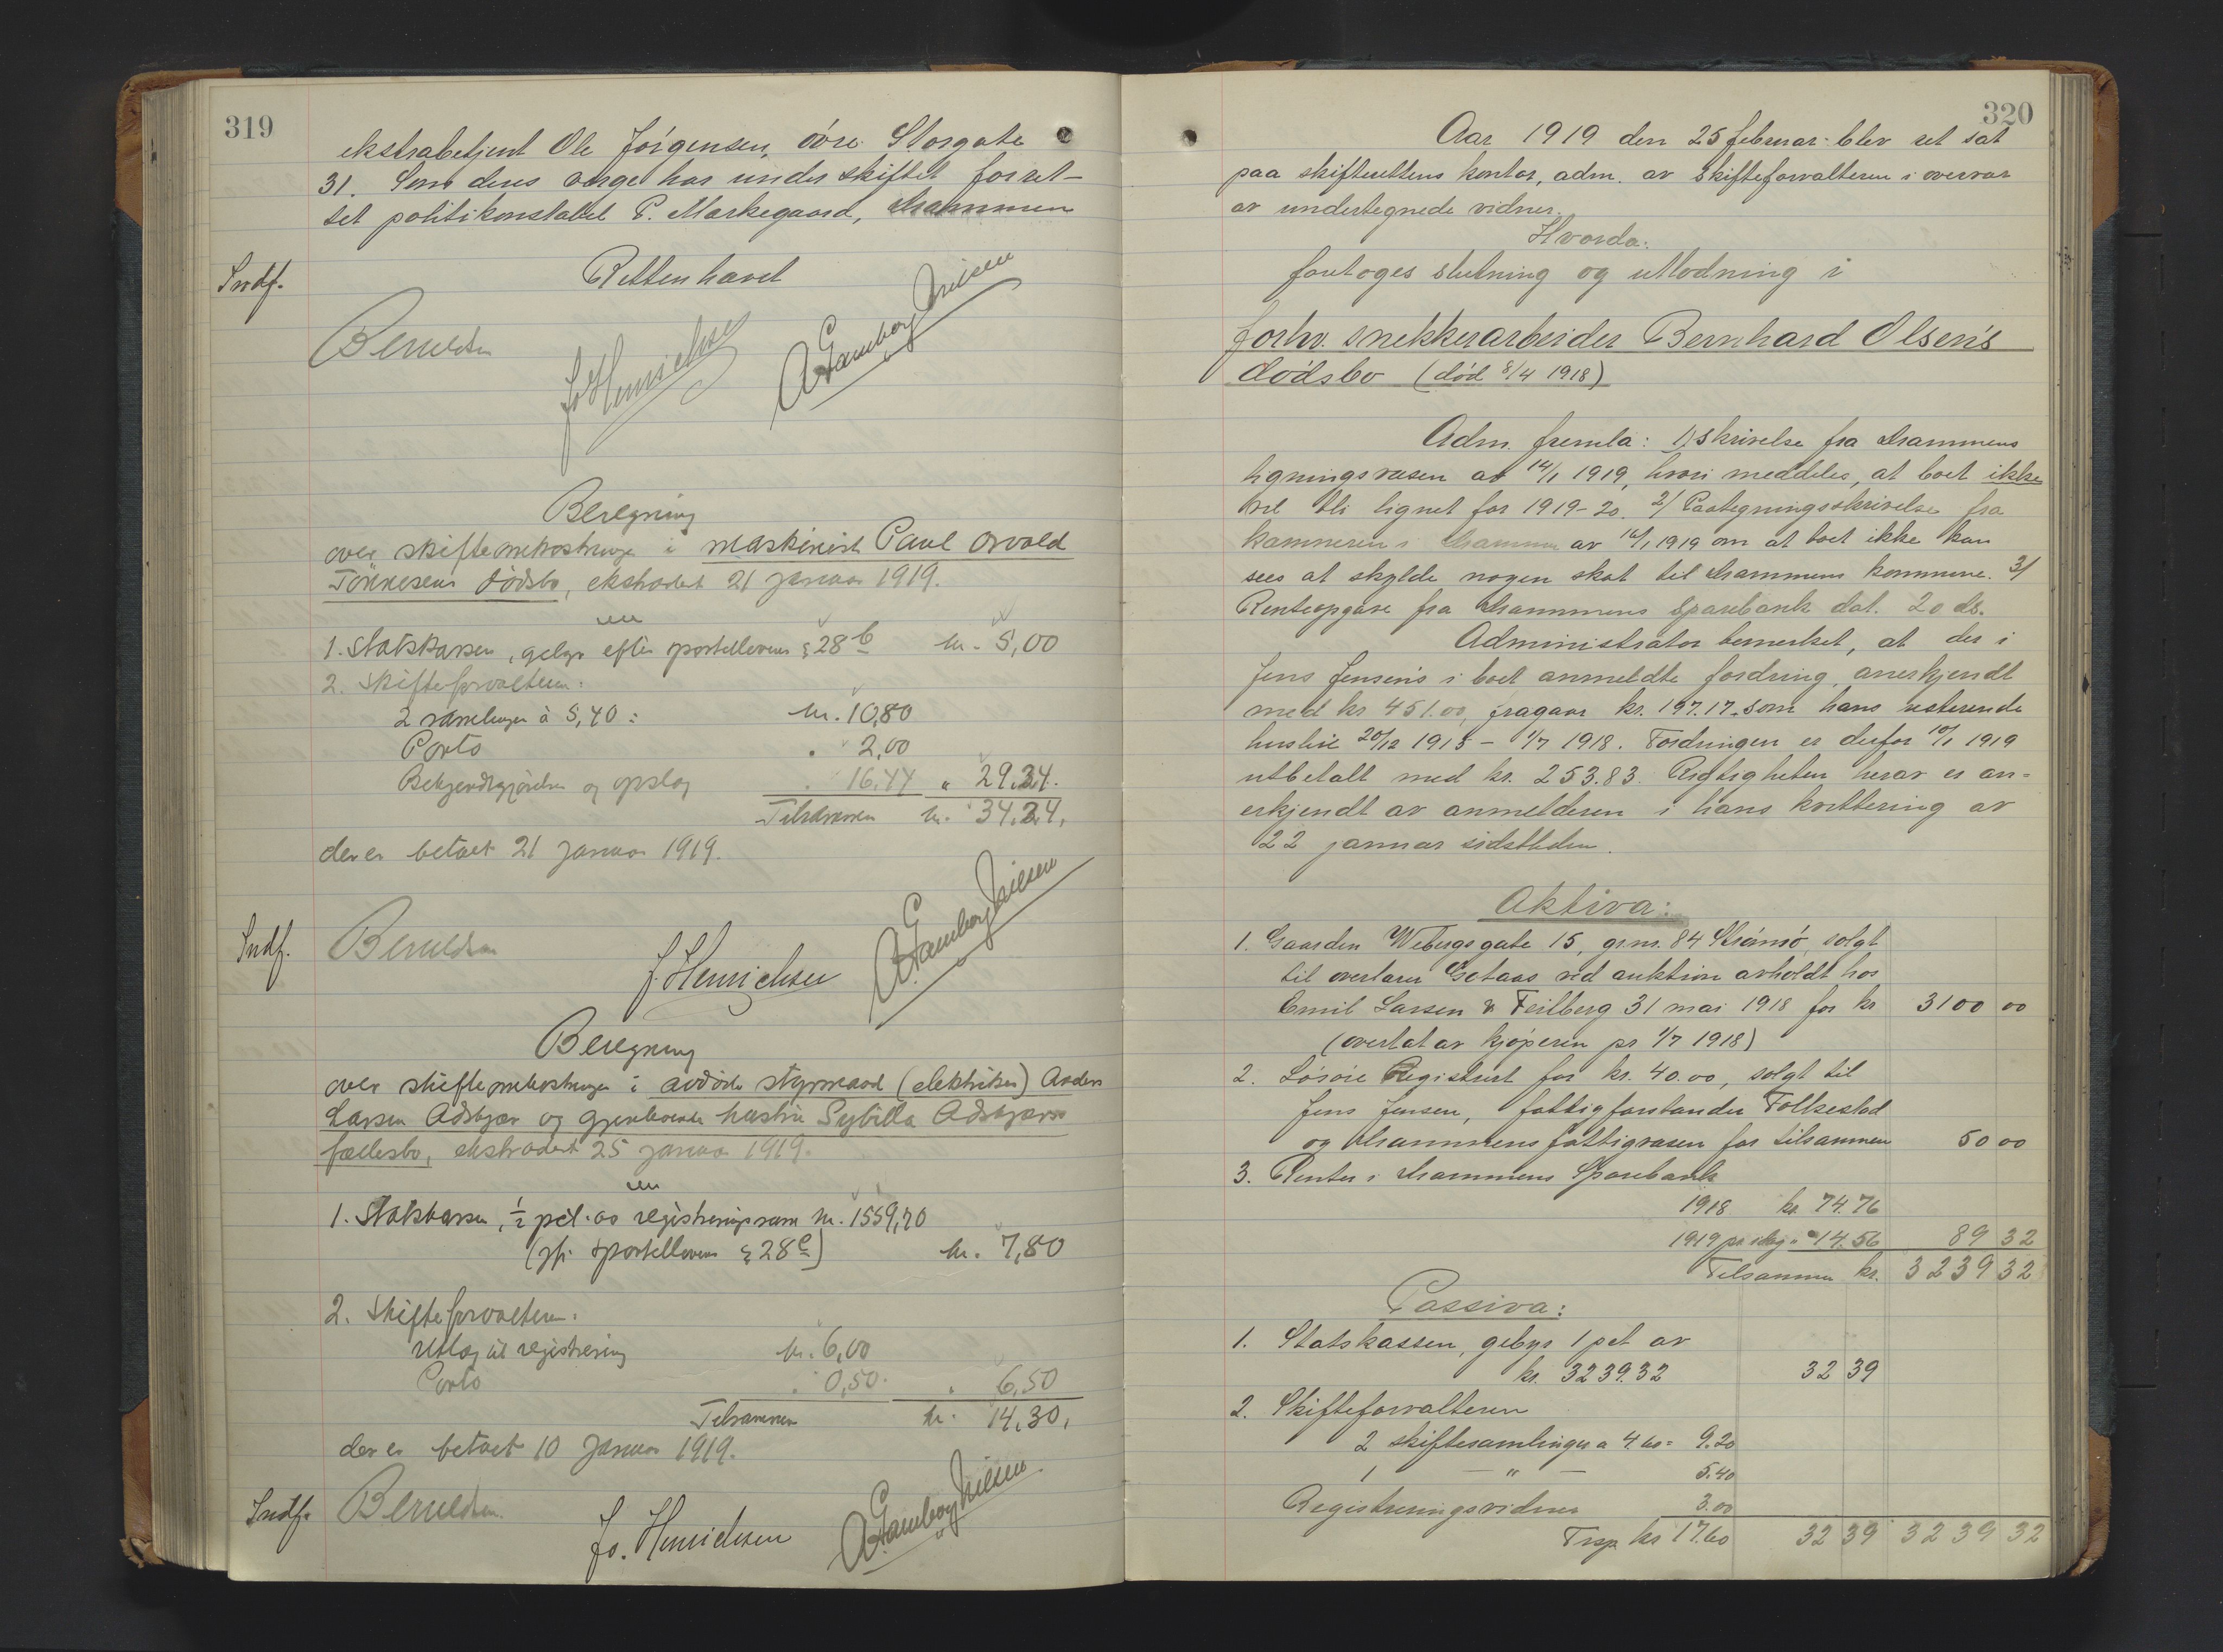 319
ekstrabetjent Ole Jörgensen, övre Storgate
31. Som deres værge har under skiftet foret-
tet politikonstabel P. Markegaard, Drammen
Retten hævet
Indf.
J. Henrichsen
Beregning
over skifteomkostninger i maskinist Paul Osvald
Tönnesens dödsbo, ekstradert 21 januar 1919.
1. Statskassen, gebyr efter sportelloven § 28 b kr. 5,00
2. Skifteforvalteren:
2 samlinger à 5,40: kr. 10,80
Porto " 2,00
Bekjendtgjörelser og opslag " 16.44 " 29.24.
Tilsammen kr. 34.24.
der er betalt 21 januar 1919.
Indf.
J. Henrichsen
Beregning
over skifteomkostninger i avdöde styrmand (elektriker) Anders
Larsen Adskjær og gjenlevende hustru Sybilla Adskjærs
fællesbo, ekstradert 25 januar 1919.
1. Statskassen, ½ pct. av registreringssum kr. 1559,70
(jfr. sportelloven § 28 e) kr. 7,80
2. Skifteforvalteren:
Utlæg til registrering kr. 6,00
Porto " 0,50. " 6,50
Tilsammen kr. 14.30.
der er betalt 10 januar 1919.
Indf.
Jo. Henrichsen
320
Aar 1919 den 25 februar blev ret sat
paa skifterettens kontor, adm. av skifteforvalteren i overvær
av undertegnede vidner.
Hvorda:
foretoges slutning og utlodning i
forhv. snekkerarbeider Bernhard Olsen's
dödsbo (död 8/4 1918)
Adm. fremla: 1) Skrivelse fra Drammens
ligningsvæsen av 14/1 1919, hvori meddeles, at boet ikke
vil bli lignet for 1919-20. 2/ Paategningsskrivelse fra
kæmneren i Drammen av 16/1 1919 om at boet ikke kan
sees at skylde nogen skat til Drammens kommune. 3/
Renteopgave fra Drammens Sparebank dat. 20 ds.
Administrator bemerket, at der i
Jens Jensen's i boet anmeldte fordring, anerkjendt
med kr 451.00, fragaar kr. 197.17 som hans resterende
husleie 20/12 1915 - 1/7 1918. Fordringen er derfor 10/1 1919
utbetalt med kr. 253.83. Rigtigheten herav er an-
erkjendt av anmelderen i hans kvittering av
22 januar sidstleden.
Aktiva:
1. Gaarden Webergsgate 15, grnr. 84 Strömsö, solgt
til overlærer Getaas ved auktion avholdt hos
Emil Larsen & Feilberg 31 mai 1918 for kr 3100 00
(overtat av kjöperen pr 1/7 1918)
2. Lösöre Registrert for kr. 40.00, solgt til
Jens Jensen, fattigforstander Folkestad
og Drammens fattigvæsen for tilsammen 50 00
3. Renter i Drammens Sparebank
1918 kr. 74.76
1919 pr idag " 14.56 89 32
Tilsammen kr. 3239 32
Passiva:
1. Statskassen, gebyr 1 pct av
kr. 3239.32 32 39
2. Skifteforvalteren
2 skiftesamlinger a 4.60 = 9.20
1 — " — 5.40
Registreringsvidner 3.00
Trsp kr 17.60 32 39 3239 32